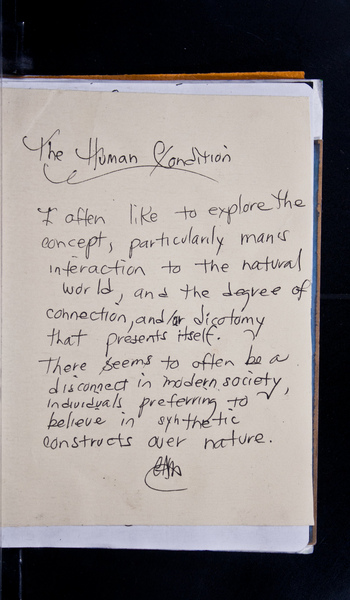 The Human Condition
I often like to explore the
concept, particularily man's
interaction to the natural
world, and the degree of
connection, and/or dicotomy
that presents itself.
There seems to often be a
disconnect in modern society,
individuals preferring to
believe in synthetic
constructs over nature.